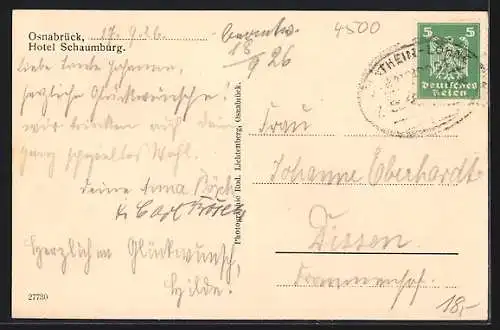 Osnabrück, 17.9.26.
Hotel Schaumburg.
beantw.
18/9 26
4500
5 5
Deutsches
Reich
Liebe Tante Johanne,
herzliche Glückwünsche!
wir trinken auf dein
ganz spezielles Wohl.
deine Anna
Carl
Herzlichen Glückwunsch,
Hilde.
Photographie Rud. Lichtenberg, Osnabrück.
Frau
Johanne Eberhardt
Dissen
27730
18,-